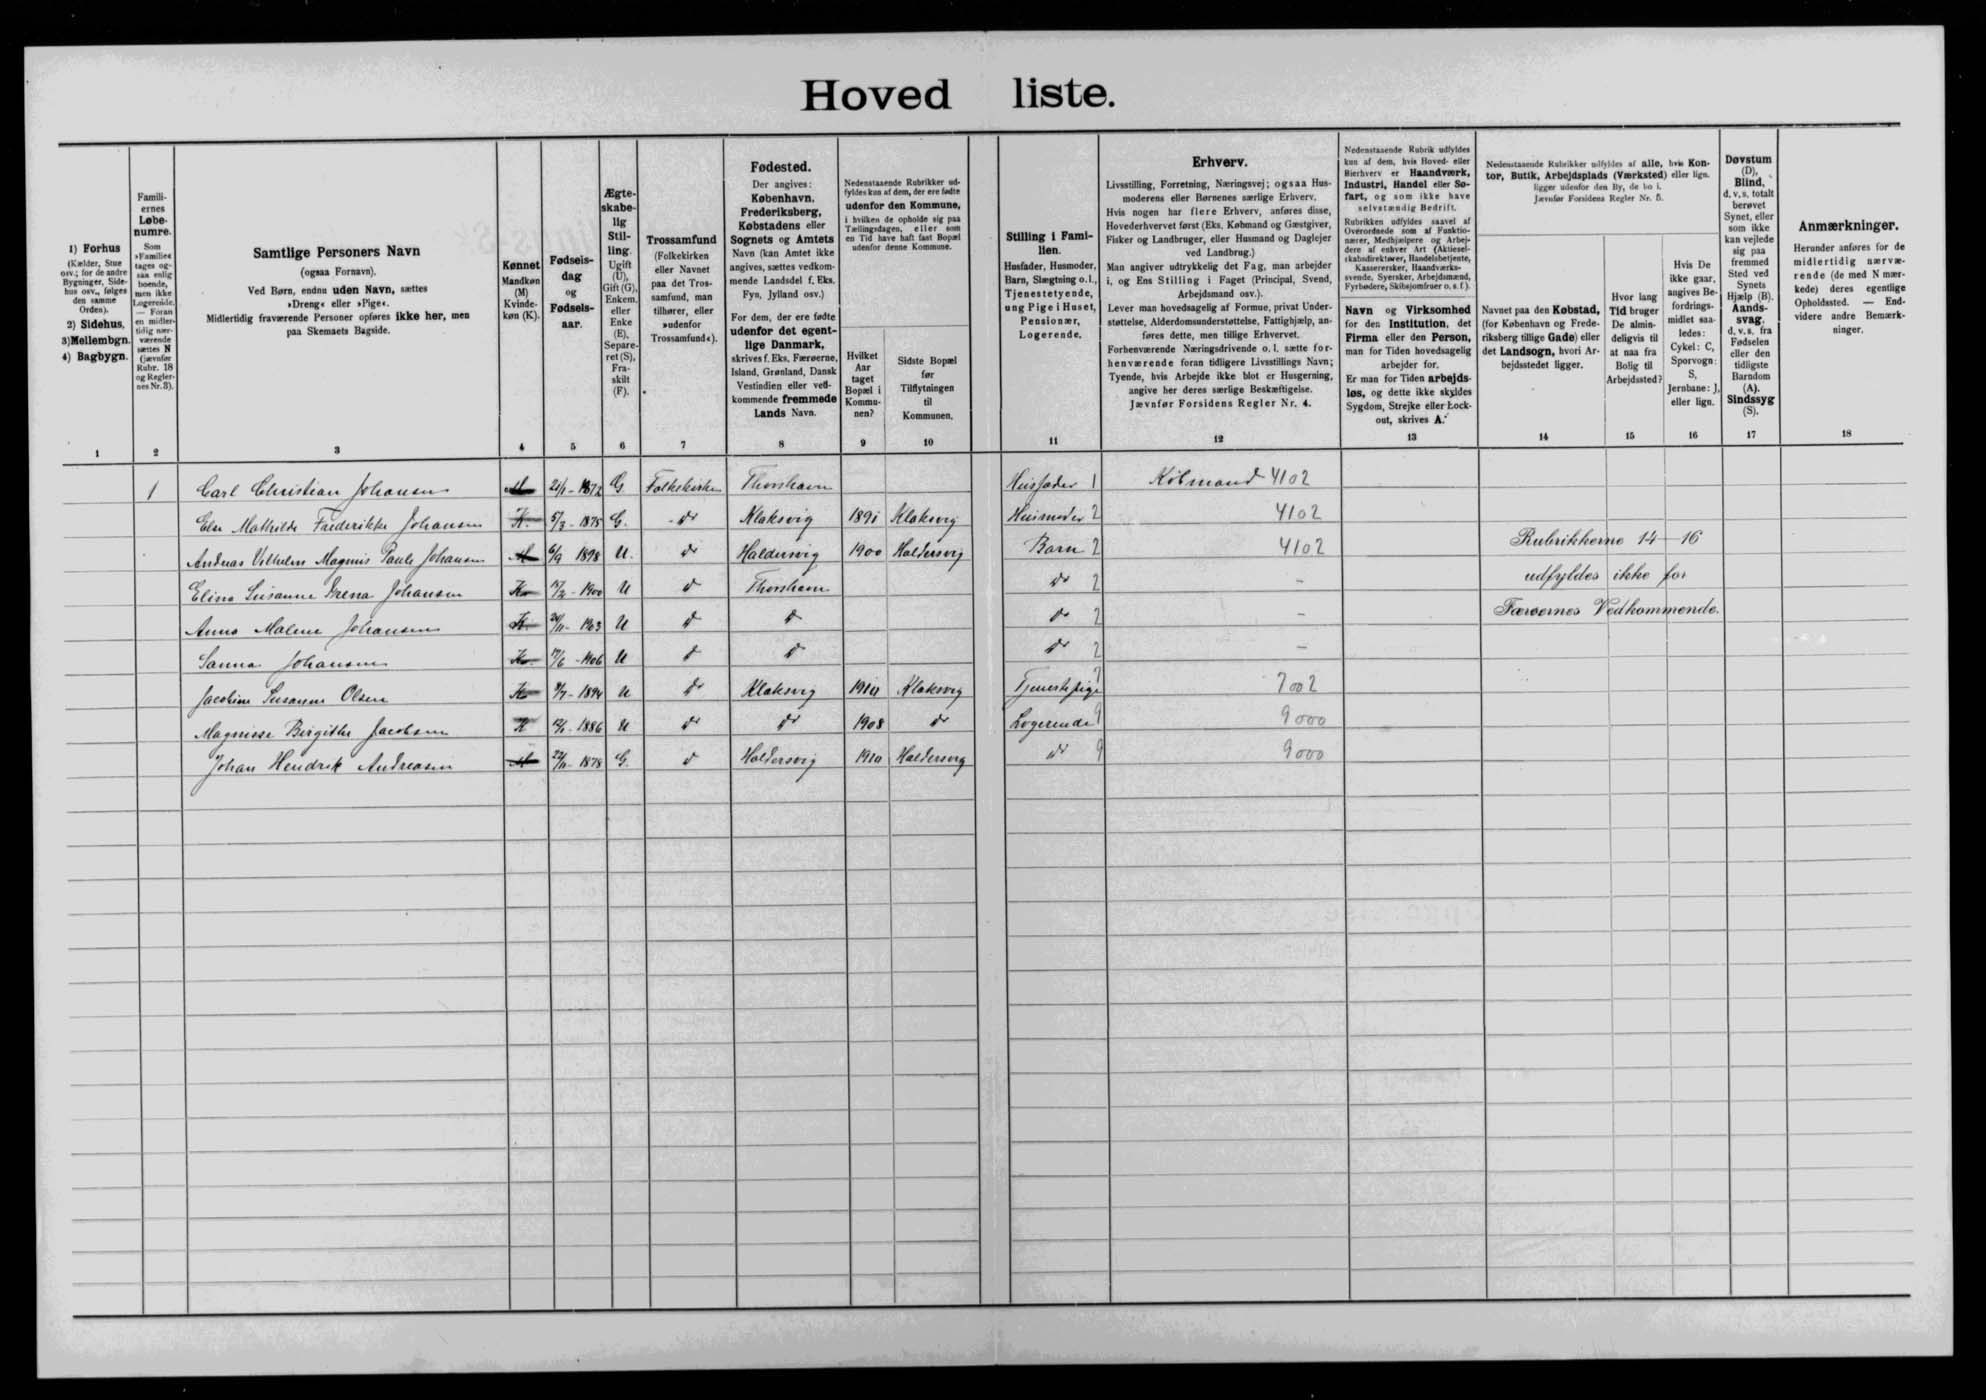 Hovedliste.
1) Forhus
(Kælder, Stue
osv.; for de andre
Bygninger, Side-
hus osv., følges
den samme
Orden).
2) Sidehus,
3) Mellembgn.
4) Bagbygn.
1
Famili-
ernes
Løbe-
numre.
Som
»Familie«
tages og-
saa enlig
boende,
men ikke
Logerende.
— Foran
en midler-
tidig nær-
værende
sættes N
(jævnfør
Rubr. 18
og Regler-
nes Nr. 3).
2
Samtlige Personers Navn
(ogsaa Fornavn).
Ved Børn, endnu uden Navn, sættes
»Dreng« eller »Pige«.
Midlertidig fraværende Personer opføres ikke her, men
paa Skemaets Bagside.
3
Kønnet
Mandkøn
(M)
Kvinde-
køn (K).
4
Fødsels-
dag
og
Fødsels-
aar.
5
Ægte-
skabe-
lig
Stil-
ling.
Ugift
(U),
Gift (G),
Enkem.
eller
Enke
(E),
Separe-
ret (S),
Fra-
skilt
(F).
6
Trossamfund
(Folkekirken
eller Navnet
paa det Tros-
samfund, man
tilhører, eller
»udenfor
Trossamfund«).
7
Fødested.
Der angives:
København,
Frederiksberg,
Købstadens eller
Sognets og Amtets
Navn (kan Amtet ikke
angives, sættes vedkom-
mende Landsdel f. Eks.
Fyn, Jylland osv.)
For dem, der ere fødte
udenfor det egent-
lige Danmark,
skrives f. Eks. Færøerne,
Island, Grønland, Dansk
Vestindien eller ved-
kommende fremmede
Lands Navn.
8
Nedenstaaende Rubrikker ud-
fyldes kun af dem, der ere fødte
udenfor den Kommune,
i hvilken de opholde sig paa
Tællingsdagen, eller som
en Tid have haft fast Bopæl
udenfor denne Kommune.
Hvilket
Aar
taget
Bopæl i
Kommu-
nen?
9
Sidste Bopæl
før
Tilflytningen
til
Kommunen.
10
Stilling i Fami-
lien.
Husfader, Husmoder,
Barn, Slægtning o.l.,
Tjenestetyende,
ung Pige i Huset,
Pensionær,
Logerende.
11
Erhverv.
Livsstilling, Forretning, Næringsvej; ogsaa Hus-
moderens eller Børnenes særlige Erhverv.
Hvis nogen har flere Erhverv, anføres disse,
Hovederhvervet først (Eks. Købmand og Gæstgiver,
Fisker og Landbruger, eller Husmand og Daglejer
ved Landbrug.)
Man angiver udtrykkelig det Fag, man arbejder
i, og Ens Stilling i Faget (Principal, Svend,
Arbejdsmand osv.).
Lever man hovedsagelig af Formue, privat Under-
støttelse, Alderdomsunderstøttelse, Fattighjælp, an-
føres dette, men tillige Erhvervet.
Forhenværende Næringsdrivende o. l. sætte for-
henværende foran tidligere Livsstillings Navn;
Tyende, hvis Arbejde ikke blot er Husgerning,
angive her deres særlige Beskæftigelse.
Jævnfør Forsidens Regler Nr. 4.
12
Nedenstaaende Rubrik udfyldes
kun af dem, hvis Hoved- eller
Bierhverv er Haandværk,
Industri, Handel eller Sø-
fart, og som ikke have
selvstændig Bedrift.
Rubrikken udfyldes saavel af
Overordnede som af Funktio-
nærer, Medhjælpere og Arbej-
dere af enhver Art (Aktiesel-
skabsdirektører, Handelsbetjente,
Kasserersker, Haandværks-
svende, Syersker, Arbejdsmænd,
Fyrbødere, Skibsjomfruer o. s. f.).
Navn og Virksomhed
for den Institution, det
Firma eller den Person,
man for Tiden hovedsagelig
arbejder for.
Er man for Tiden arbejds-
løs, og dette ikke skyldes
Sygdom, Strejke eller Lock-
out, skrives A.
13
Nedenstaaende Rubrikker udfyldes af alle, hvis Kon-
tor, Butik, Arbejdsplads (Værksted) eller lign.
ligger udenfor den By, de bo i.
Jævnfør Forsidens Regler Nr. 5.
Navnet paa den Købstad,
(for København og Frede-
riksberg tillige Gade) eller
det Landsogn, hvori Ar-
bejdsstedet ligger.
14
Hvor lang
Tid bruger
De almin-
deligvis til
at naa fra
Bolig til
Arbejdssted?
15
Hvis De
ikke gaar,
angives Be-
fordrings-
midlet saa-
ledes:
Cykel: C,
Sporvogn:
S,
Jernbane: J,
eller lign.
16
Døvstum
(D),
Blind,
d. v. s. totalt
berøvet
Synet, eller
som ikke
kan vejlede
sig paa
fremmed
Sted ved
Synets
Hjælp (B).
Aands-
svag,
d. v. s. fra
Fødselen
eller den
tidligste
Barndom
(A).
Sindssyg
(S).
17
Anmærkninger.
Herunder anføres for de
midlertidig nærvæ-
rende (de med N mær-
kede) deres egentlige
Opholdssted. — End-
videre andre Bemærk-
ninger.
18
1 Carl Christian Johansen M 21/1 - 1872 G Folkekirke Thorshavn Husfader 1 Købmand 4102
Else Mathilde Frederikke Johansen K. 5/3 - 1875 G. do Klaksvig 1891 Klaksvig Husmoder 2 4102
Andreas Vilhelm Magnus Pauli Johansen M 6/9 1898 U. do Haldersvig 1900 Haldersvig Barn 2 4102 Rubrikkerne 14-16
Elina Susanne Johansen K 1900 U do Thorshavn do 2 - udfyldes ikke for
Anna Malene Johansen K. 1903 U do do do 2 - Færøernes Vedkommende.
Sanna Johansen K. 1906 U do do do 2 -
Jacobine Susanne Olsen K 1894 U do Klaksvig 1910 Klaksvig Tjenestepige 7 7002
Birgithe Jacobsen K 1886 U do do 1908 do Logerende 9 9000
Johan Hendrik Andreasen M 1878 G. do Haldersvig 1910 Haldersvig do 9 9000